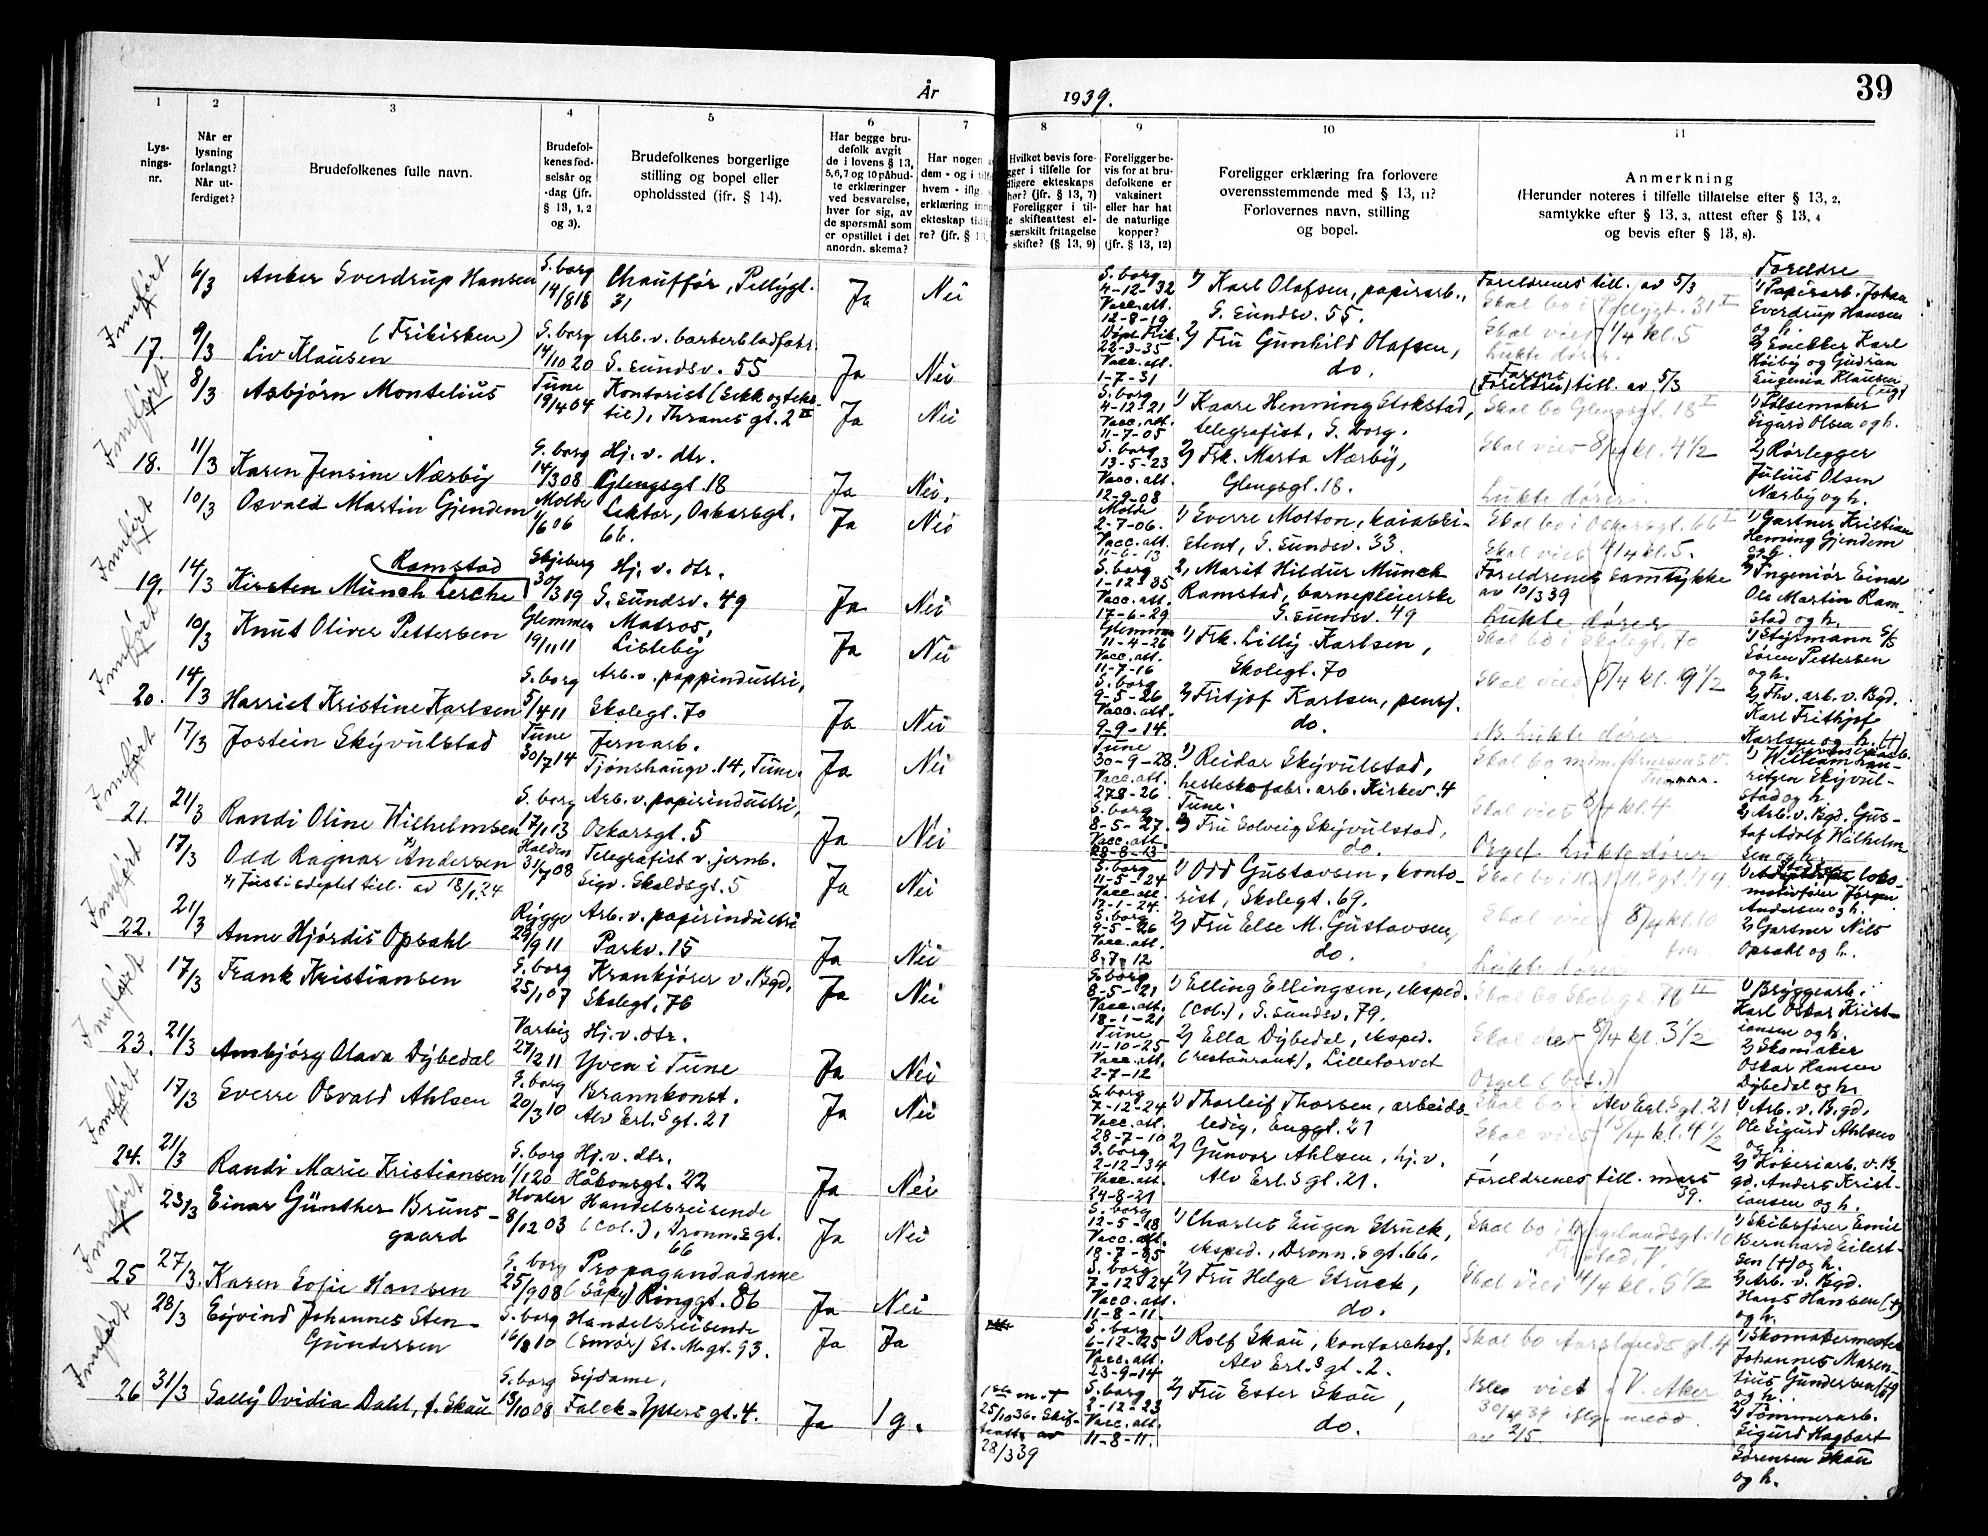 39
År 1939.
1 2 3 4 5 6 7 8 9 10 11
Lys-
nings-
nr.
Når er
lysning
forlangt?
Når ut-
ferdiget?
Brudefolkenes fulle navn.
Brudefol-
kenes fød-
selsår og
-dag (jfr.
§ 13, 1, 2
og 3).
Brudefolkenes borgerlige
stilling og bopel eller
opholdssted (jfr. § 14).
Har begge bru-
defolk avgit
de i lovens § 13,
5, 6, 7 og 10 påbud-
te erklæringer
ved besvarelse,
hver for sig, av
de spørsmål som
er opstillet i det
anordn. skema?
Har nogen
dem - og i
hvem - ifl.
erklæring
ekteskap
re? (jfr. §
Hvilket bevis fore-
ligger i tilfelle for
ekteskaps
(jfr. § 13, 7)
Foreligger i til-
skifteattest el-
særskilt fritagelse
skifte? (§ 13, 9)
Foreligger be-
vis for at bru-
defolkene er
vaksinert
eller har hat
de naturlige
kopper?
(jfr. § 13, 12)
Foreligger erklæring fra forlovere
overensstemmende med § 13, 11?
Forlovernes navn, stilling
og bopel.
Anmerkning
(Herunder noteres i tilfelle tillatelse efter § 13, 2,
samtykke efter § 13, 3, attest efter § 13, 4
og bevis efter § 13, 8).
Innført
17.
6/3 Anker Sverdrup Hansen
S. borg
14/8 18
Chauffør, Pellygt.
31
Ja Nei
S. borg
4-12-32
Vacc. att.
12-8-19
1) Karl Olafsen, papirarb.,
S. sundsv. 55.
Foreldrenes till. av 5/3
Skal bo i Pellygt. 31 II
Skal vies 1/4 kl. 5
Lukte dører.
Foreldre
1) Papirarb. Johan
Sverdrup Hansen
og h.
9/3 (Frikirken)
Liv Klausen
S. borg
14/10 20
Arb. v. barberbladfabr.
S. sundsv. 55
Ja Nei
22-3-35
Vacc. att.
1-7-31
2) Fru Gunhild Olafsen,
do.
2) Snekker Karl
Høiby og Gudrun
Eugenia Klausen
(ug)
Innført
18.
8/3 Asbjørn Montelius
Tune
19/4 04
Kontorist (Sekk og teks-
til), Thranes gt. 2 II
Ja Nei
S. borg
4-12-21
Vacc. att.
11-7-05
1) Kaare Henning Stokstad,
telegrafist, S. borg.
(Foreldres) till. av 5/3
Skal bo Glengsgt. 18 I
Skal vies 8/4 kl. 4 1/2
Lukte dører.
1) Pølsemaker
Sigurd Olsen og h.
11/3 Karen Jensine Nærby
S. borg
14/3 08
Hj. v. dtr.
Glengsgt. 18
Ja Nei.
S. borg
13-5-23
Vacc. att.
12-9-08
2) Frk. Marta Nærby,
Glengsgt. 18.
2) Rørlegger
Julius Olsen
Nærby og h.
Innført
19.
10/3 Osvald Martin Gjendem
Molde
1/6 06
Lektor, Oskarsgt.
66.
Ja Nei
Molde
2-7-06.
Vacc. att.
11-6-13
1) Sverre Molton,
S. sundsv. 33.
Skal bo i Oskarsgt. 66 I
Skal vies 4/4 kl. 5.
1) Gartner Kristian
Henning Gjendem
og h.
14/3 Ramstad
Kirsten Münch Lerche
Skjeberg
30/3 19
Hj. v. dtr.
S. sundsv. 49
Ja Nei
S. borg
1-12-35
Vacc. att.
17-6-29
2) Marit Hildur Münch
Ramstad, barnepleierske
S. sundsv. 49
Foreldrenes samtykke
av 10/3 39
Lukte dører
2) Ingeniør Einar
Ole Martin Ram-
stad og h.
Innført
20.
10/3 Knut Oliver Pettersen
Glemmen
19/11 11
Matros,
Lisleby
Ja Nei
Glemmen
11-4-26
Vacc. att.
11-7-16
1) Frk. Lilly Karlsen,
Skolegt. 70
Skal bo i Skolegt. 70
Skal vies 8/4 kl. 9 1/2
1) Styrmann S/S
Søren Pettersen
og h.
14/3 Harriet Kristine Karlsen
S. borg
5/4 11
Arb. v. pappindustri,
Skolegt. 70
Ja Nei
S. borg
9-5-26
Vacc. att.
9-9-14.
2) Fritjof Karlsen, pensj.
do.
NB Lukte dører
2) Fhv. arb. v. Bgd.
Karl Frithjof
Karlsen og h. (+)
Innført
21.
17/3 Jostein Skyvulstad
Tune
30/7 14
Jernarb.
Tjønshaugv. 14, Tune.
Ja Nei
Tune
30-9-28.
Vacc. att.
27-8-26
1) Reidar Skyvulstad,
hesteskofabr. arb. Kirkev. 4
Tune.
Skal vies 8/4 kl. 4
Orgel Lukte dører
1) William Lau-
ritzen Skyvul-
stad og h.
21/3 Randi Oline Wilhelmsen
S. borg
17/1 13
Arb. v. papirindustri,
Oskarsgt. 5
Ja Nei
S. borg
8-5-27.
Vacc. att.
28-8-13
2) Fru Solveig Skyvulstad,
do.
2) Arb. v. Bgd. Gus-
taf Adolf Wilhelm-
sen og h.
Innført
22.
17/3 Odd Ragnar *) Andersen
*) Justisdeptet till. av 18/1 24
Halden
31/7 08
Telegrafist v. jernb.
Sigv. Skaldsgt. 5
Ja Nei
S. borg
11-5-24
Vacc. att.
17-1-24.
1) Odd Gustavsen, konto-
rist, Skolegt. 69.
Skal vies 8/4 kl. 10
Lukte dører
loko-
motivfører Jørgen
Andersen og h.
21/3 Anne Hjørdis Opsahl
Rygge
29/9 11
Arb. v. papirindustri
Parkv. 15
Ja Nei
S. borg
9-5-26
Vacc. att.
8-7-12
2) Fru Else M. Gustavsen,
do.
2) Gartner Nils
Opsahl og h.
Innført
23.
17/3 Frank Kristiansen
S. borg
25/1 07
Krankjører v. Bgd.
Skolegt. 76
Ja Nei
S. borg
8-5-21
Vacc. att.
18-1-21
1) Elling Ellingsen, eksped.
(col.), S. sundsv. 79.
Skal bo Skolegt. 76 II
Skal vies 8/4 kl. 3 1/2
Orgel (bet.)
1) Bryggearb.
Karl Oskar Krist-
iansen og h.
21/3 Ambjørg Olava Dybedal
Varteig
27/2 11
Hj. v. dtr.
Yven i Tune
Ja Nei
Tune
11-10-25
Vacc. att.
2-7-12
2) Ella Dybedal, eksped.
(restaurant), Lilletorvet
2) Skomaker
Oskar Hansen
Dybedal og h.
Innført
24.
17/3 Sverre Osvald Ahlsen
S. borg
20/3 10
Brannkonst.
Alv Erl.s gt. 21
Ja Nei
S. borg
7-12-24
Vacc. att.
28-7-10
1) Thorleif Thorsen, arbeids-
ledig, Enggt. 21
Skal bo i Alv Erl.s gt. 21
Skal vies 15/4 kl. 4 1/2
1) Arb. v. B.gd.
Ole Sigurd Ahlsen
og h.
21/3 Randi Marie Kristiansen
S. borg
1/1 20
Hj. v. dtr.
Håkonsgt. 22
Ja Nei
S. borg
2-12-34
Vacc. att.
24-8-21
2) Gunvor Ahlsen, hj. v.
Alv Erl.s gt. 21.
Foreldrenes till. mars
39.
2) Kokeriarb. v. B-
gd. Anders Krist-
iansen og h.
Innført
25
23/3 Einar Günther Bruns-
gaard
Hvaler
8/12 03
Handelsreisende
(Col.), Dronn.s gt.
66
Ja Nei
S. borg
12-5-18
Vacc. att.
18-7-85
1) Charles Eugen Struck,
eksped., Dronn.s gt. 66,
Skal vies 4/4 kl. 5 1/2
1) Skibsfører Emil
Bernhard Eilert-
sen (+) og h.
27/3. Karen Sofie Hansen
S. borg
25/9 08
Propagandadame
(Såpe) Ringgt. 86
Ja Nei
S. borg
7-12-24
Vacc. att.
11-8-11.
2) Fru Helga Struck,
do.
2) Arb. v. Bgd.
Hans Hansen (+)
og h.
Innført
26
28/3 Eyvind Johannes Sten-
Gundersen
S. borg
16/8 10
Handelsreisende
(Smør) St. M.gt. 93.
Ja Ja
S. borg
6-12-25
Vacc. att.
23-9-14
1) Rolf Skau, kontorchef.
Alv Erl.s gt. 2.
1) Skomakermester
Johannes Maren-
tius Gundersen
og h.
31/3 Sally Ovidia Dahl, f. Skau
S. borg
13/10 08
Sydame,
Falck-Ytters gt. 4.
Ja 1 g.
1ste m. +
25/10 36. Skif-
teatt. av
28/3 39
S. borg
2-12-23
Vacc. att.
11-8-11.
2) Fru Ester Skau,
do.
Blev viet i V. Aker
30/4 39 iflg. medd.
av 2/5.
2) Tømmerarb.
Sigurd Hagbart
Sørensen Skau
og h.